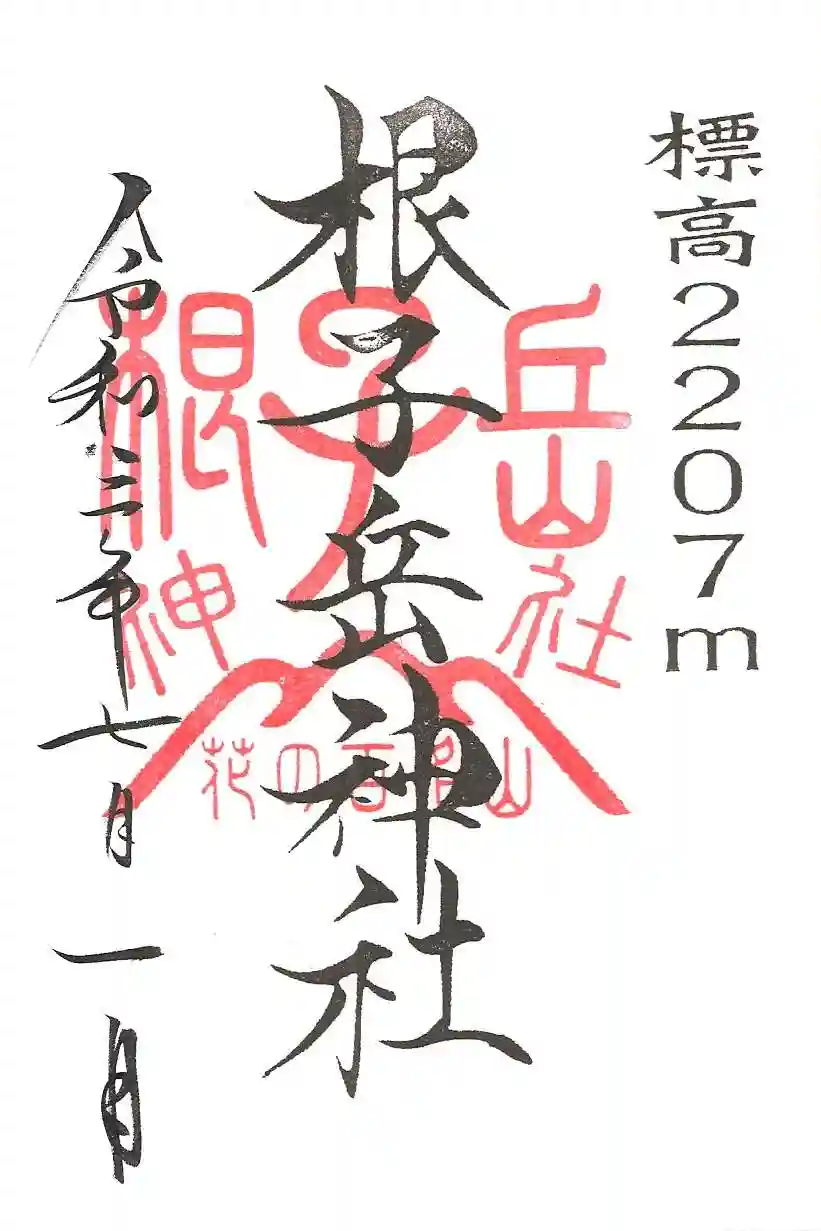 標高2207m
根子岳神社
令和三年七月一日
根子岳
神社
花の百名山